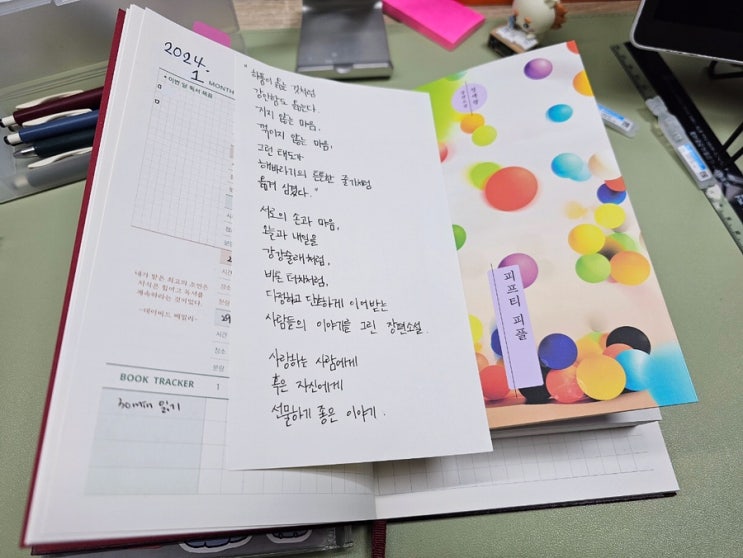 2024.
1 MONTH
• 이번 달 독서 목표
시간
장소
분량
시간
장소
분량
시간
장소
분량
내가 받은 최고의 조언은
지식은 힘이고 독서를
계속하라는 것이었다.
-데이비드 베일리-
BOOK TRACKER 1
30min 읽기
"하품이 옮는 것처럼
강인함도 옮는다.
지지 않는 마음,
꺾이지 않는 마음,
그런 태도가
해바라기의 튼튼한 줄기처럼
옮겨 심겼다."
서로의 손과 마음,
오늘과 내일을
강강술래처럼,
바톤 터치처럼,
다정하고 단단하게 이어받는
사람들의 이야기를 그린 장편소설.
사랑하는 사람에게
혹은 자신에게
선물하기 좋은 이야기.
정세랑
장편소설
피프티 피플